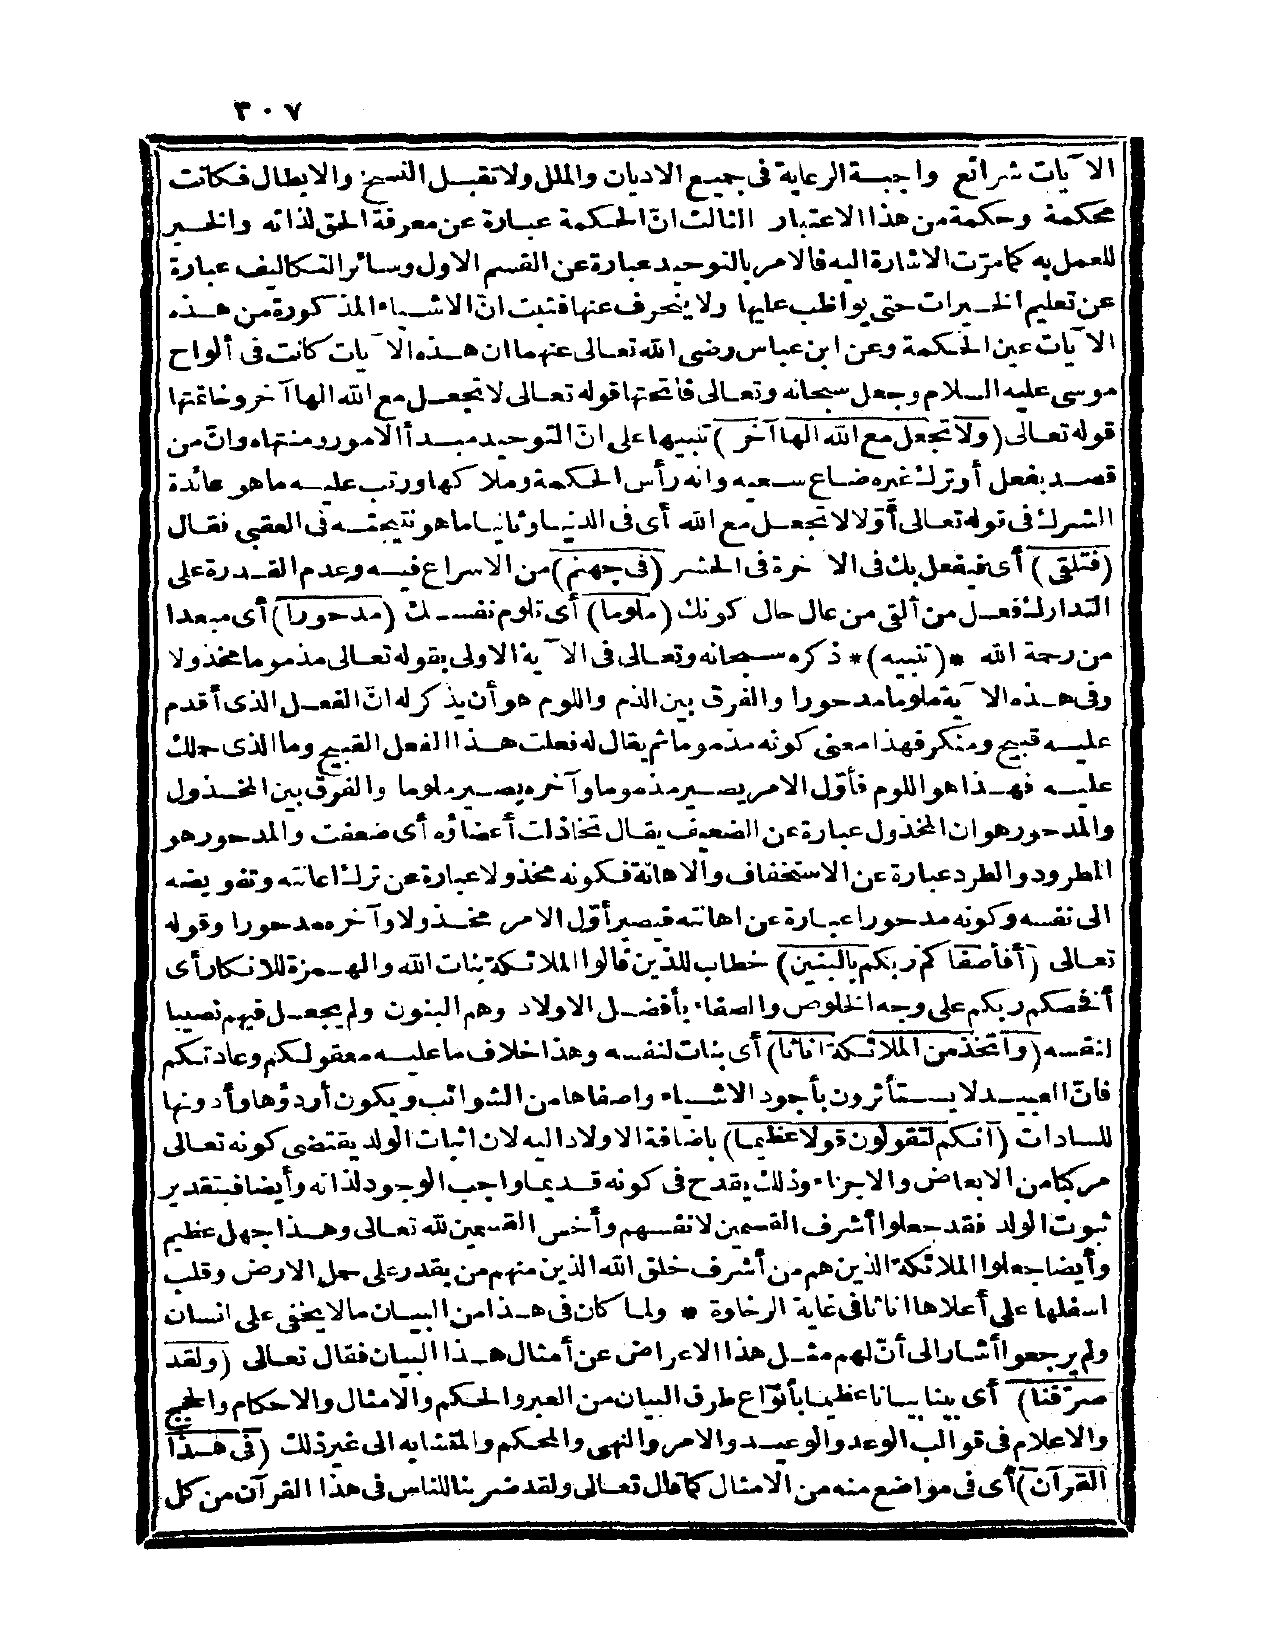 ٣٠٧
الآيات شرائع واجبة الرعاية فى جميع الاديان والملل ولا تقبل النسخ والابطال فكانت
محكمة وحكمة من هذا الاعتبار الثالث انّ الحكمة عبارة عن معرفة الحق لذاته والخير
للعمل به كما مرّت الاشارة اليه فالامر بالتوحيد عبارة عن القسم الاول وسائر التكاليف عبارة
عن تعليم الخيرات حتى يواظب عليها ولا ينحرف عنها فثبت انّ الاشياء المذكورة من هذه
الآيات عين الحكمة وعن ابن عباس رضى الله تعالى عنهما ان هذه الآيات كانت فى ألواح
موسى عليه السلام وجعل سبحانه وتعالى فاتحتها قوله تعالى لا تجعل مع الله الها آخر وخاتمتها
قوله تعالى (ولا تجعل مع الله الها آخر) تنبيها على انّ التوحيد مبدأ الامور ومنتهاه وانّ من
قصد بفعل أو ترك غيره ضاع سعيه وانه رأس الحكمة وملاكها ورتب عليه ما هو عائدة
الشرك فى قوله تعالى أوّلا لا تجعل مع الله أى فى الدنيا وثانيا ما هو نتيجته فى العقبى فقال
(فتلقى) أى فيفعل بك فى الآخرة فى الحشر (فى جهنم) من الاسراع فيه وعدم القدرة على
التدارك فعل من ألقى من عال حال كونك (ملوما) أى تلوم نفسك (مدحورا) أى مبعدا
من رحمة الله *(تنبيه)* ذكره سبحانه وتعالى فى الآية الاولى بقوله تعالى مذموما مخذولا
وفى هذه الآية ملوما مدحورا والفرق بين الذم واللوم هو أن يذكر له انّ الفعل الذى أقدم
عليه قبيح ومنكر فهذا معنى كونه مذموما ثم يقال له فعلت هذا الفعل القبيح وما الذى حملك
عليه فهذا هو اللوم فأوّل الامر يصير مذموما وآخره يصير ملوما والفرق بين المخذول
والمدحور هو ان المخذول عبارة عن الضعيف يقال تخاذلت أعضاؤه أى ضعفت والمدحور هو
المطرود والطرد عبارة عن الاستخفاف والاهانة فكونه مخذولا عبارة عن ترك اعانته وتفويضه
الى نفسه وكونه مدحورا عبارة عن اهانته فيصير أوّل الامر مخذولا وآخره مدحورا وقوله
تعالى (أفأصفاكم ربكم بالبنين) خطاب للذين قالوا الملائكة بنات الله والهمزة للانكار أى
أفخصكم ربكم على وجه الخلوص والصفاء بأفضل الاولاد وهم البنون ولم يجعل فيهم نصيبا
لنفسه (واتخذ من الملائكة اناثا) أى بنات لنفسه وهذا خلاف ما عليه معقولكم وعادتكم
فانّ العبيد لا يستأثرون بأجود الاشياء واصفاها من الشوائب ويكون أردؤها وأدونها
للسادات (انكم لتقولون قولا عظيما) باضافة الاولاد اليه لان اثبات الولد يقتضى كونه تعالى
مركبا من الابعاض والاجزاء وذلك يقدح فى كونه قديما واجب الوجود لذاته وأيضا فبتقدير
ثبوت الولد فقد جعلوا أشرف القسمين لانفسهم وأخس القسمين لله تعالى وهذا جهل عظيم
وأيضا جعلوا الملائكة الذين هم من أشرف خلق الله الذين منهم من يقدر على حمل الارض وقلب
اسفلها على أعلاها اناثا فى غاية الرخاوة * ولما كان فى هذا من البيان ما لا يخفى على انسان
ولم يرجعوا أشار الى أنّ لهم مثل هذا الاعراض عن أمثال هذا البيان فقال تعالى (ولقد
صرّفنا) أى بينا بيانا عظيما بأنواع طرق البيان من العبر والحكم والامثال والاحكام والحجج
والاعلام فى قوالب الوعد والوعيد والامر والنهى والمحكم والمتشابه الى غير ذلك (فى هذا
القرآن) أى فى مواضع منه من الامثال كما قال تعالى ولقد ضربنا للناس فى هذا القرآن من كل